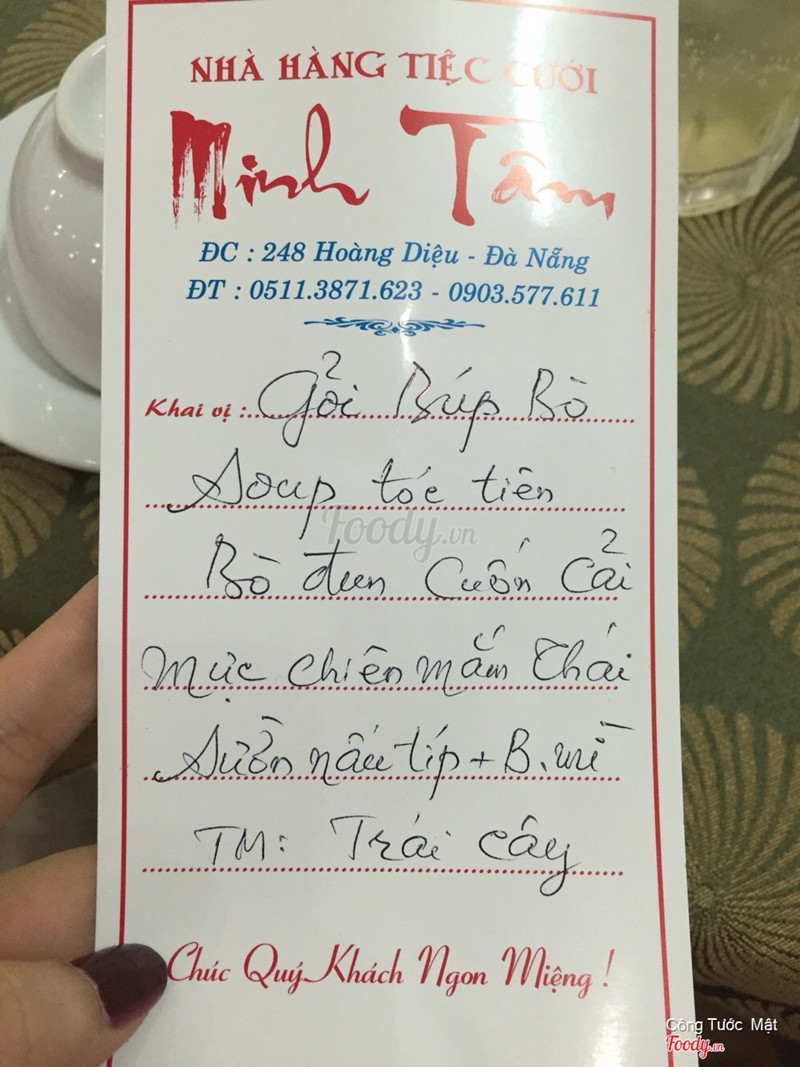 NHÀ HÀNG TIỆC CƯỚI
Minh Tâm
ĐC : 248 Hoàng Diệu - Đà Nẵng
ĐT : 0511.3871.623 - 0903.577.611
Khai vị : Gỏi Búp Bò
Soup tóc tiên
Foody.vn
Bò đun Cuốn Cải
Mực chiên mắm Thái
Sườn nấu típ + B. mì
TM: Trái cây
Chúc Quý Khách Ngon Miệng !
Công Tước Mật
Foody.vn